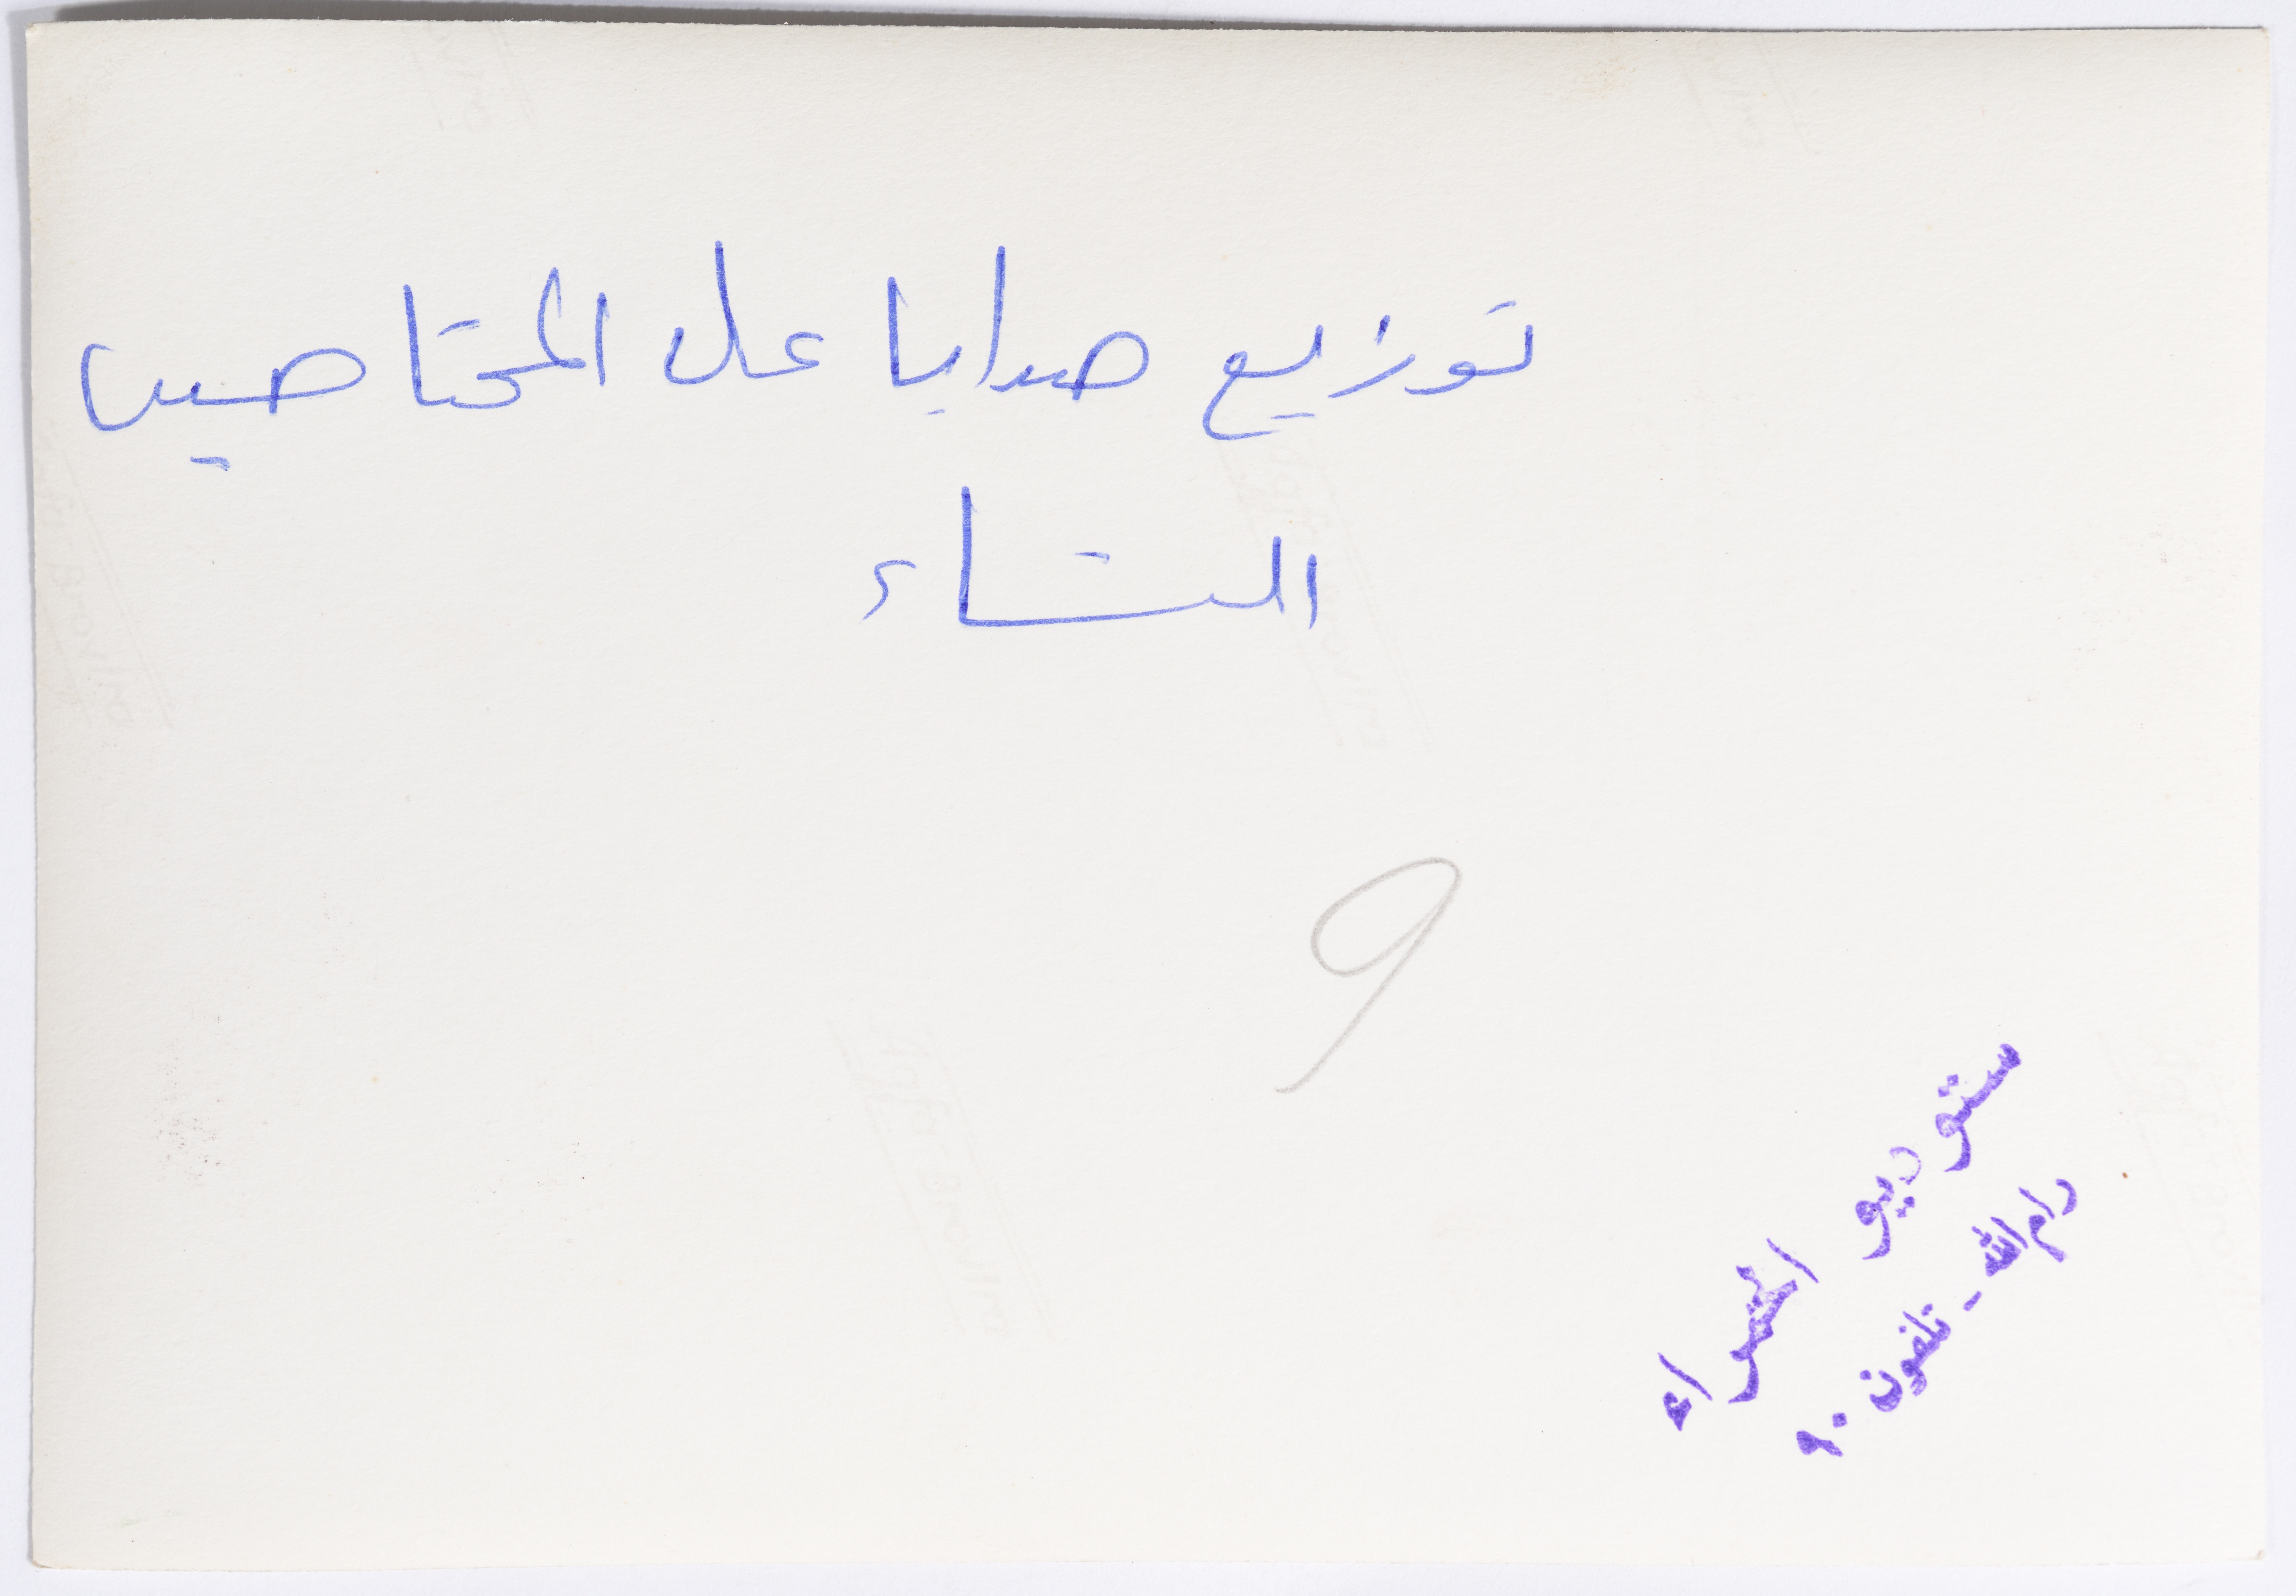 توزيع هدايا على المحتاجين
الشتاء
9
ستوديو
رام الله - تلفون ٩٠